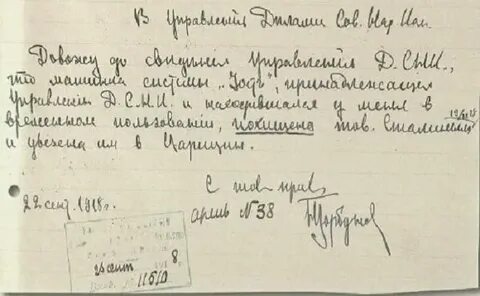 В Управленiе Делами Сов. Нар. Ком.
Довожу до сведенiя Управленiя Д.С.Н.К.,
что машина системы „Форд", принадлежащая
Управленiю Д.С.Н.К. и находившаяся у меня в
временном пользованiи, похищена тов. Сталиным
и увезена им в Царицын.
С тов. прив.
22 сент. 1918 г.
аршь N 38
Горбунов
26 сент 8
11510